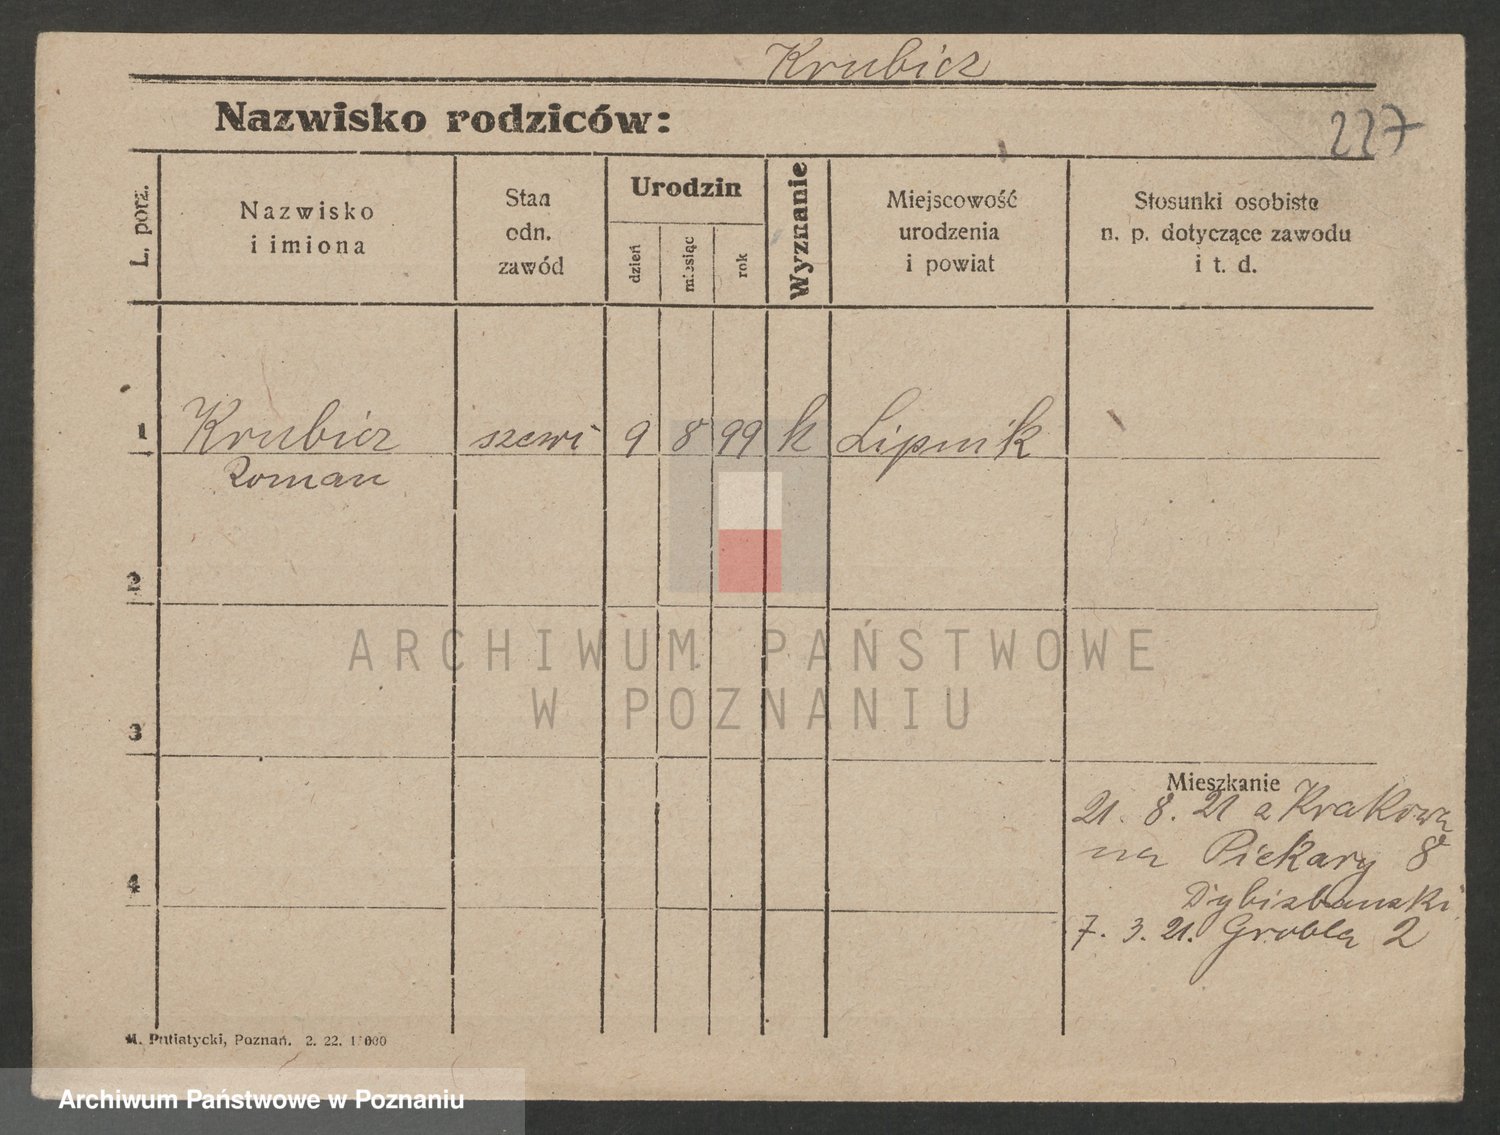 Krubicz
Nazwisko rodziców:
227
L. porz.
Nazwisko
i imiona
Stan
odn.
zawód
Urodzin
dzień
miesiąc
rok
Wyznanie
Miejscowość
urodzenia
i powiat
Stosunki osobiste
n. p. dotyczące zawodu
i t. d.
1
Krubicz szewc 9 8 99 k Lipnik
Roman
2
3
4
Mieszkanie
21. 8. 21 z Krakowa
na Piekary 8
7. 3. 21. Grobla 2
M. Putiatycki, Poznań. 2. 22.
ARCHIWUM PAŃSTWOWE
W POZNANIU
Archiwum Państwowe w Poznaniu